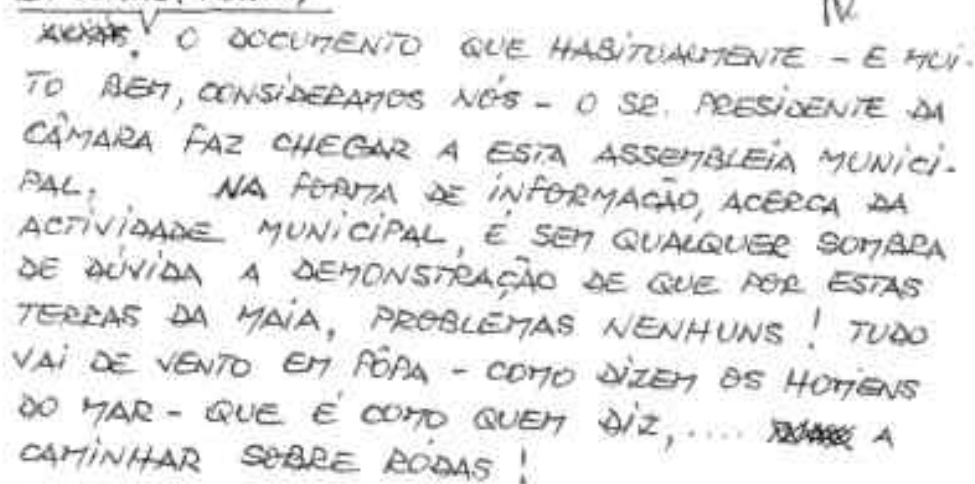 O DOCUMENTO QUE HABITUALMENTE - E MUI-
TO BEM, CONSIDERAMOS NÓS - O SR. PRESIDENTE DA
CÂMARA FAZ CHEGAR A ESTA ASSEMBLEIA MUNICI-
PAL, NA FORMA DE INFORMAÇÃO, ACERCA DA
ACTIVIDADE MUNICIPAL, É SEM QUALQUER SOMBRA
DE DÚVIDA A DEMONSTRAÇÃO DE QUE POR ESTAS
TERRAS DA MAIA, PROBLEMAS NENHUNS! TUDO
VAI DE VENTO EM PÔPA - COMO DIZEM OS HOMENS
DO MAR - QUE É COMO QUEM DIZ,.... A
CAMINHAR SOBRE RODAS!